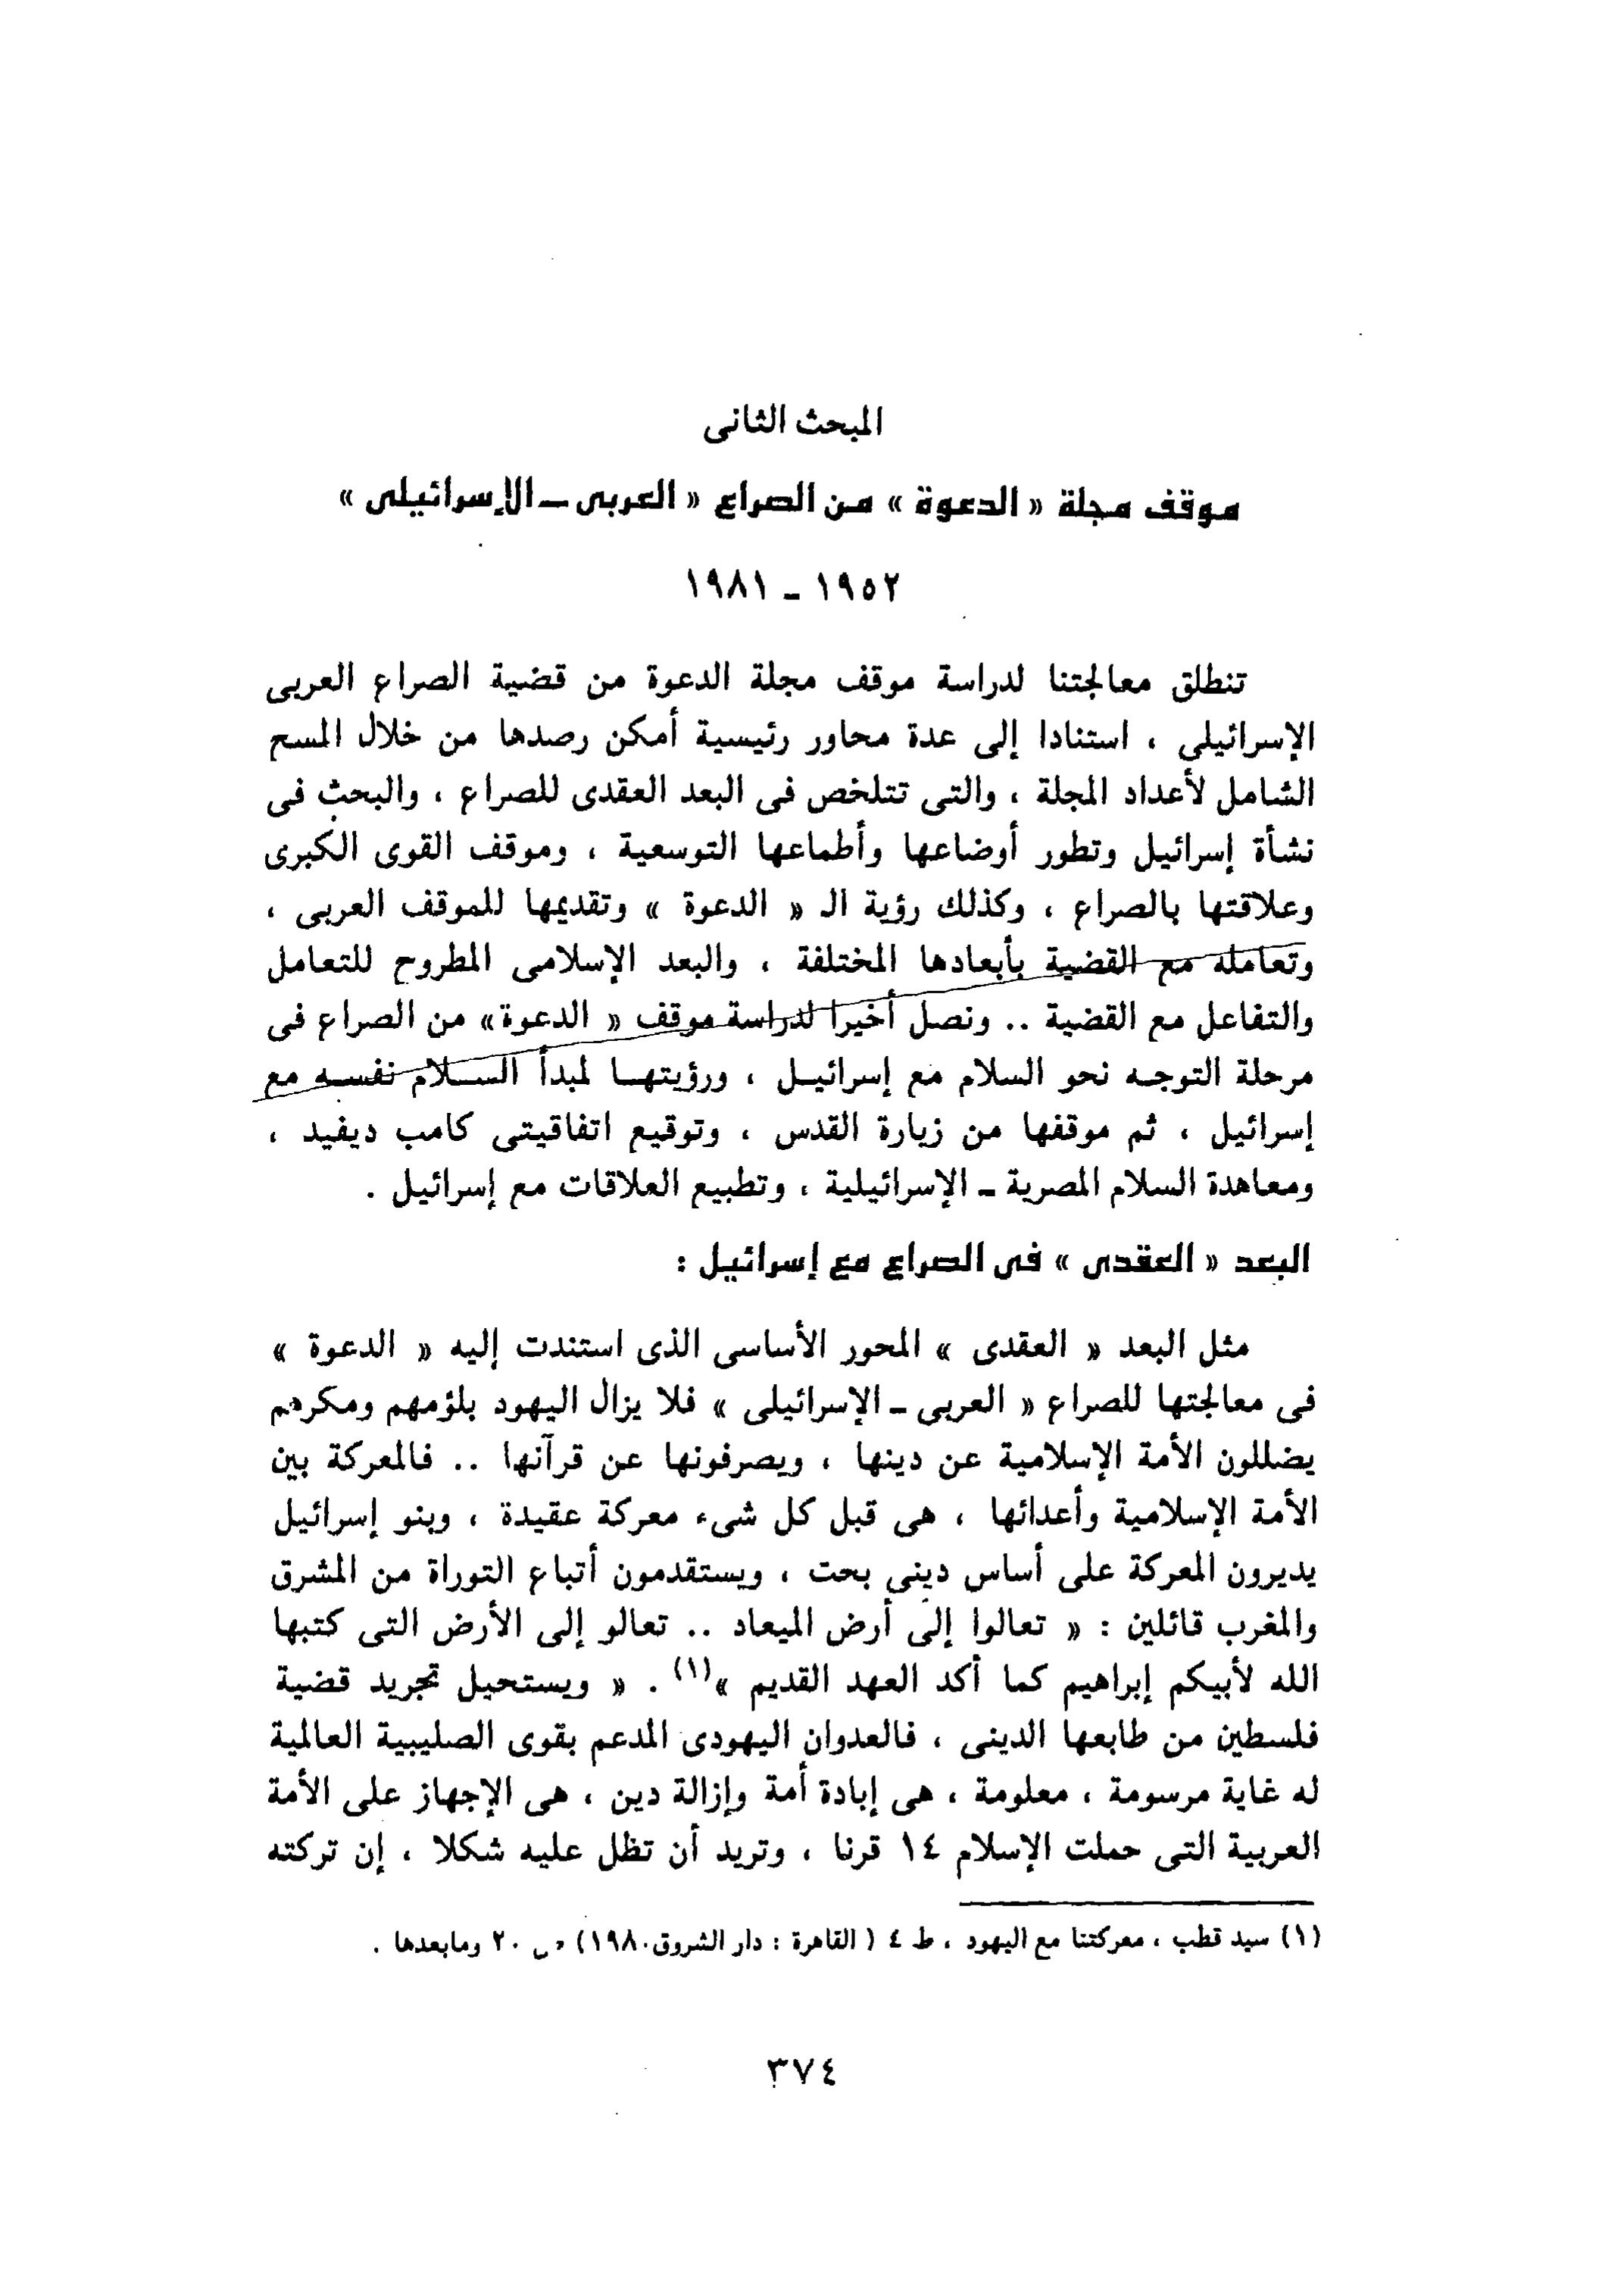 المبحث الثانى
موقف مجلة « الدعوة » من الصراع « العربى ــ الإسرائيلى »
١٩٥٢ ــ ١٩٨١
تنطلق معالجتنا لدراسة موقف مجلة الدعوة من قضية الصراع العربى
الإسرائيلي ، استنادا إلى عدة محاور رئيسية أمكن رصدها من خلال المسح
الشامل لأعداد المجلة ، والتى تتلخص فى البعد العقدى للصراع ، والبحث فى
نشأة إسرائيل وتطور أوضاعها وأطماعها التوسعية ، وموقف القوى الكبرى
وعلاقتها بالصراع ، وكذلك رؤية الـ « الدعوة » وتقديمها للموقف العربى ،
وتعامله مع القضية بأبعادها المختلفة ، والبعد الإسلامى المطروح للتعامل
والتفاعل مع القضية .. ونصل أخيرا لدراسة موقف « الدعوة» من الصراع فى
مرحلة التوجه نحو السلام مع إسرائيل ، ورؤيتها لمبدأ السلام نفسه مع
إسرائيل ، ثم موقفها من زيارة القدس ، وتوقيع اتفاقيتى كامب ديفيد ،
ومعاهدة السلام المصرية ــ الإسرائيلية ، وتطبيع العلاقات مع إسرائيل .
البعد « العقدى » فى الصراع مع إسرائيل :
مثل البعد « العقدى » المحور الأساسى الذى استندت إليه « الدعوة »
فى معالجتها للصراع « العربى ــ الإسرائيلى » فلا يزال اليهود بلؤمهم ومكرهم
يضللون الأمة الإسلامية عن دينها ، ويصرفونها عن قرآنها .. فالمعركة بين
الأمة الإسلامية وأعدائها ، هى قبل كل شىء معركة عقيدة ، وبنو إسرائيل
يديرون المعركة على أساس دينى بحت ، ويستقدمون أتباع التوراة من المشرق
والمغرب قائلين : « تعالوا إلى أرض الميعاد .. تعالو إلى الأرض التى كتبها
الله لأبيكم إبراهيم كما أكد العهد القديم »(١) . « ويستحيل تجريد قضية
فلسطين من طابعها الدينى ، فالعدوان اليهودى المدعم بقوى الصليبية العالمية
له غاية مرسومة ، معلومة ، هى إبادة أمة وإزالة دين ، هى الإجهاز على الأمة
العربية التى حملت الإسلام ١٤ قرنا ، وتريد أن تظل عليه شكلا ، إن تركته
(١) سيد قطب ، معركتنا مع اليهود ، ط ٤ ( القاهرة : دار الشروق ١٩٨٠) ص ٢٠ ومابعدها .
٣٧٤